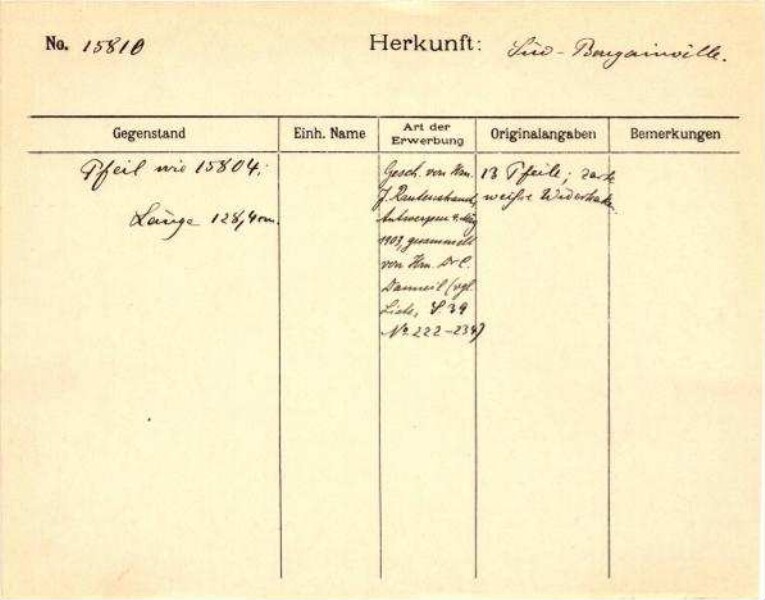 No. 15810 Herkunft: Süd-Bougainville.
Gegenstand Einh. Name Art der Erwerbung Originalangaben Bemerkungen
Pfeil wie 15804;
Länge 128,4 cm.
Gesch. von Hrn.
J. Rautenstrauch,
Antwerpen 4. Mai
1903, gesammelt
von Hrn. Dr C.
Danneil (vgl.
Liste, S 39
No. 222–234)
13 Pfeile;
weiße Widerhaken.